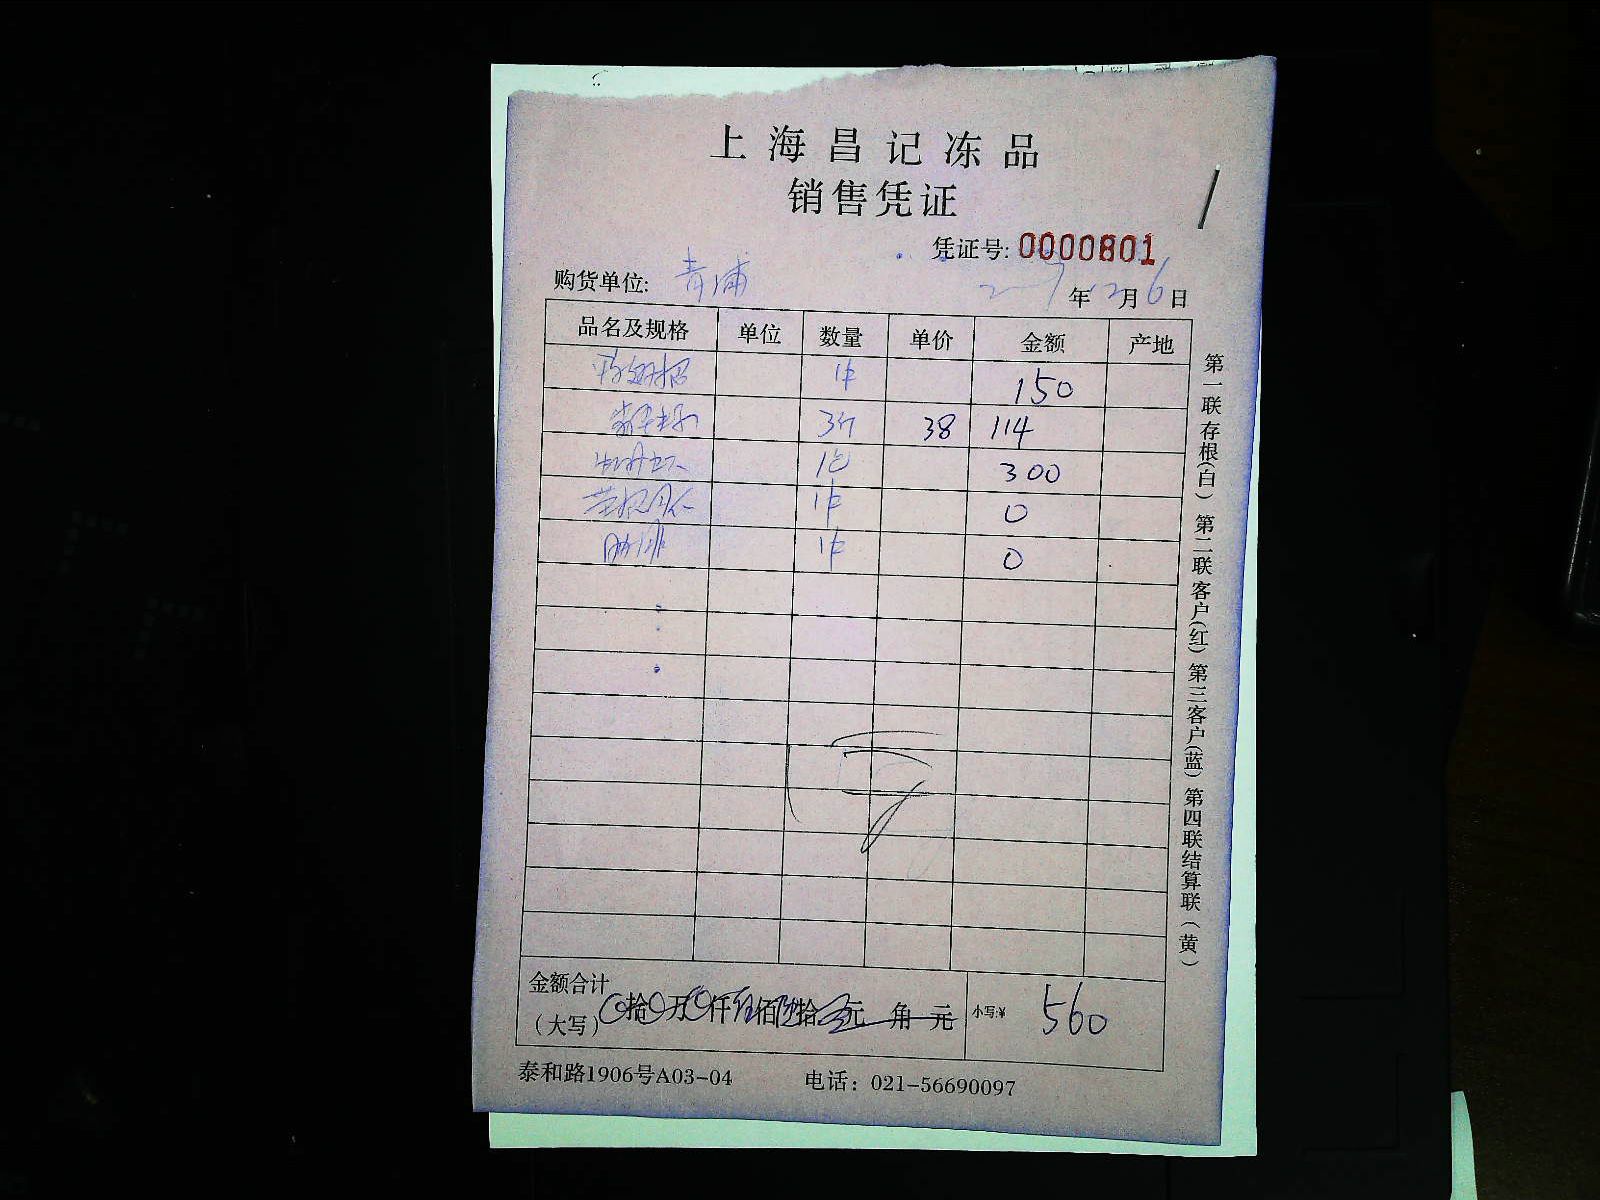 上海昌记冻品
销售凭证
凭证号: 0000801
购货单位: 青浦 年12月6日
品名及规格 单位 数量 单价 金额 产地
1件 150
38 114
1包 300
1件 0
肋排 1件 0
金额合计
(大写) 0拾0万0仟伍佰陆拾 元 角 元 小写:¥ 560
泰和路1906号A03-04 电话: 021-56690097
第一联存根(白) 第二联客户(红) 第三客户(蓝) 第四联结算联(黄)